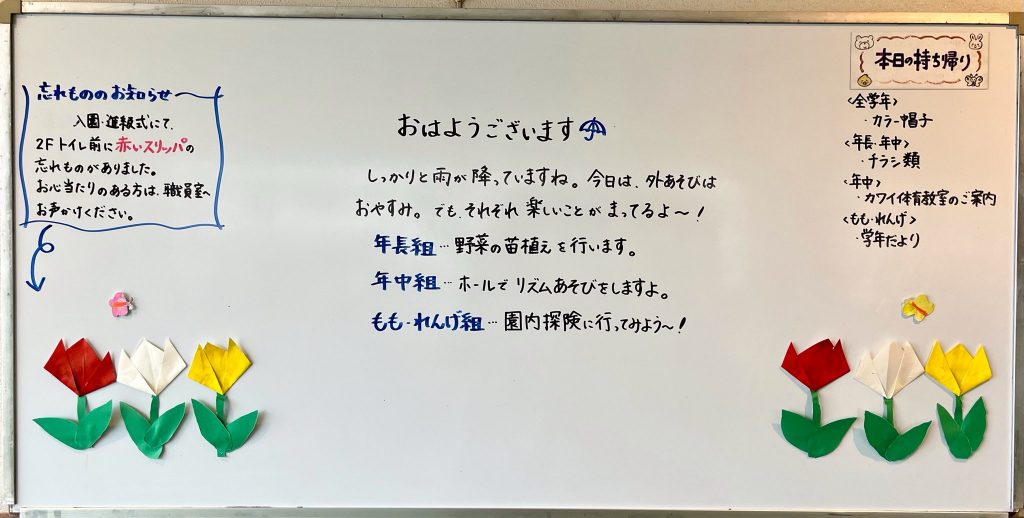 忘れもののお知らせ
入園・進級式にて、
2Fトイレ前に赤いスリッパの
忘れものがありました。
お心当たりのある方は、職員室へ
お声かけください。
おはようございます
しっかりと雨が降っていますね。今日は、外あそびは
おやすみ。でも、それぞれ楽しいことがまってるよ〜!
年長組…野菜の苗植えを行います。
年中組…ホールでリズムあそびをしますよ。
もも・れんげ組…園内探険に行ってみよう〜!
本日の持ち帰り
<全学年>
・カラー帽子
<年長・年中>
・チラシ類
<年中>
・カワイ体育教室のご案内
<もも・れんげ>
・学年だより